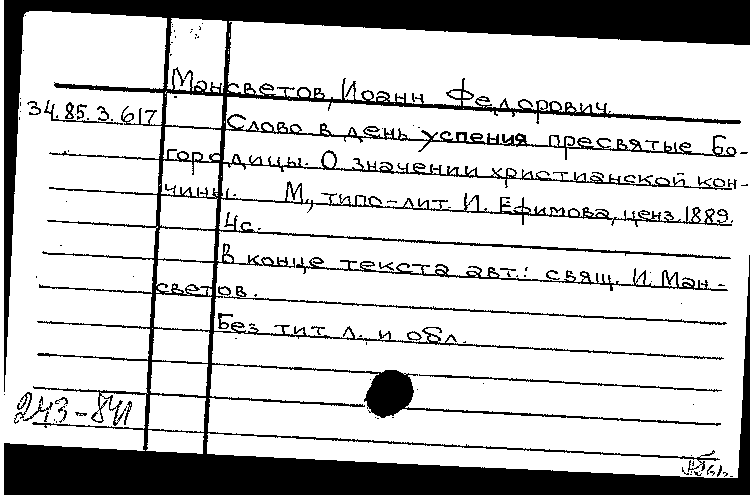 Мансветов, Иоанн Федорович.
34.85.3.617
Слово в день успения пресвятые Бо-
городицы. О значении христианской кон-
чины. М., типо-лит. И. Ефимова, ценз. 1889.
4с.
В конце текста авт.: свящ. И. Ман-
светов.
Без тит. л. и обл.